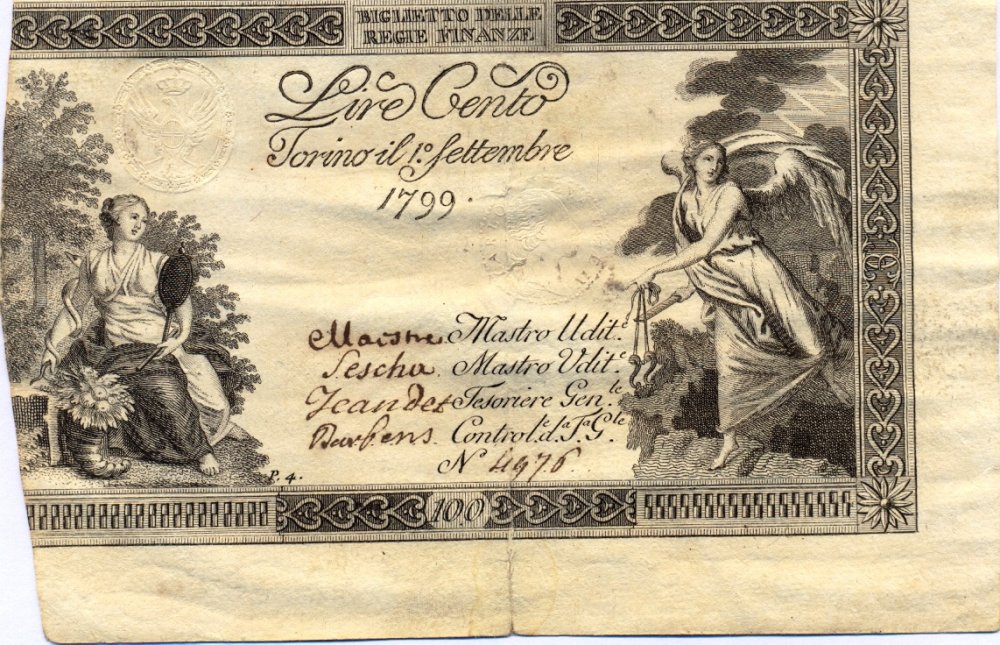 BIGLIETTO DELLE
REGIE FINANZE
Lire Cento
Torino il 1.º Settembre
1799.
Mastro Udit.e
Mastro Udit.e
Tesoriere Gen.le
Control.e d.a T.a G.le
N 4976
P. 4.
100